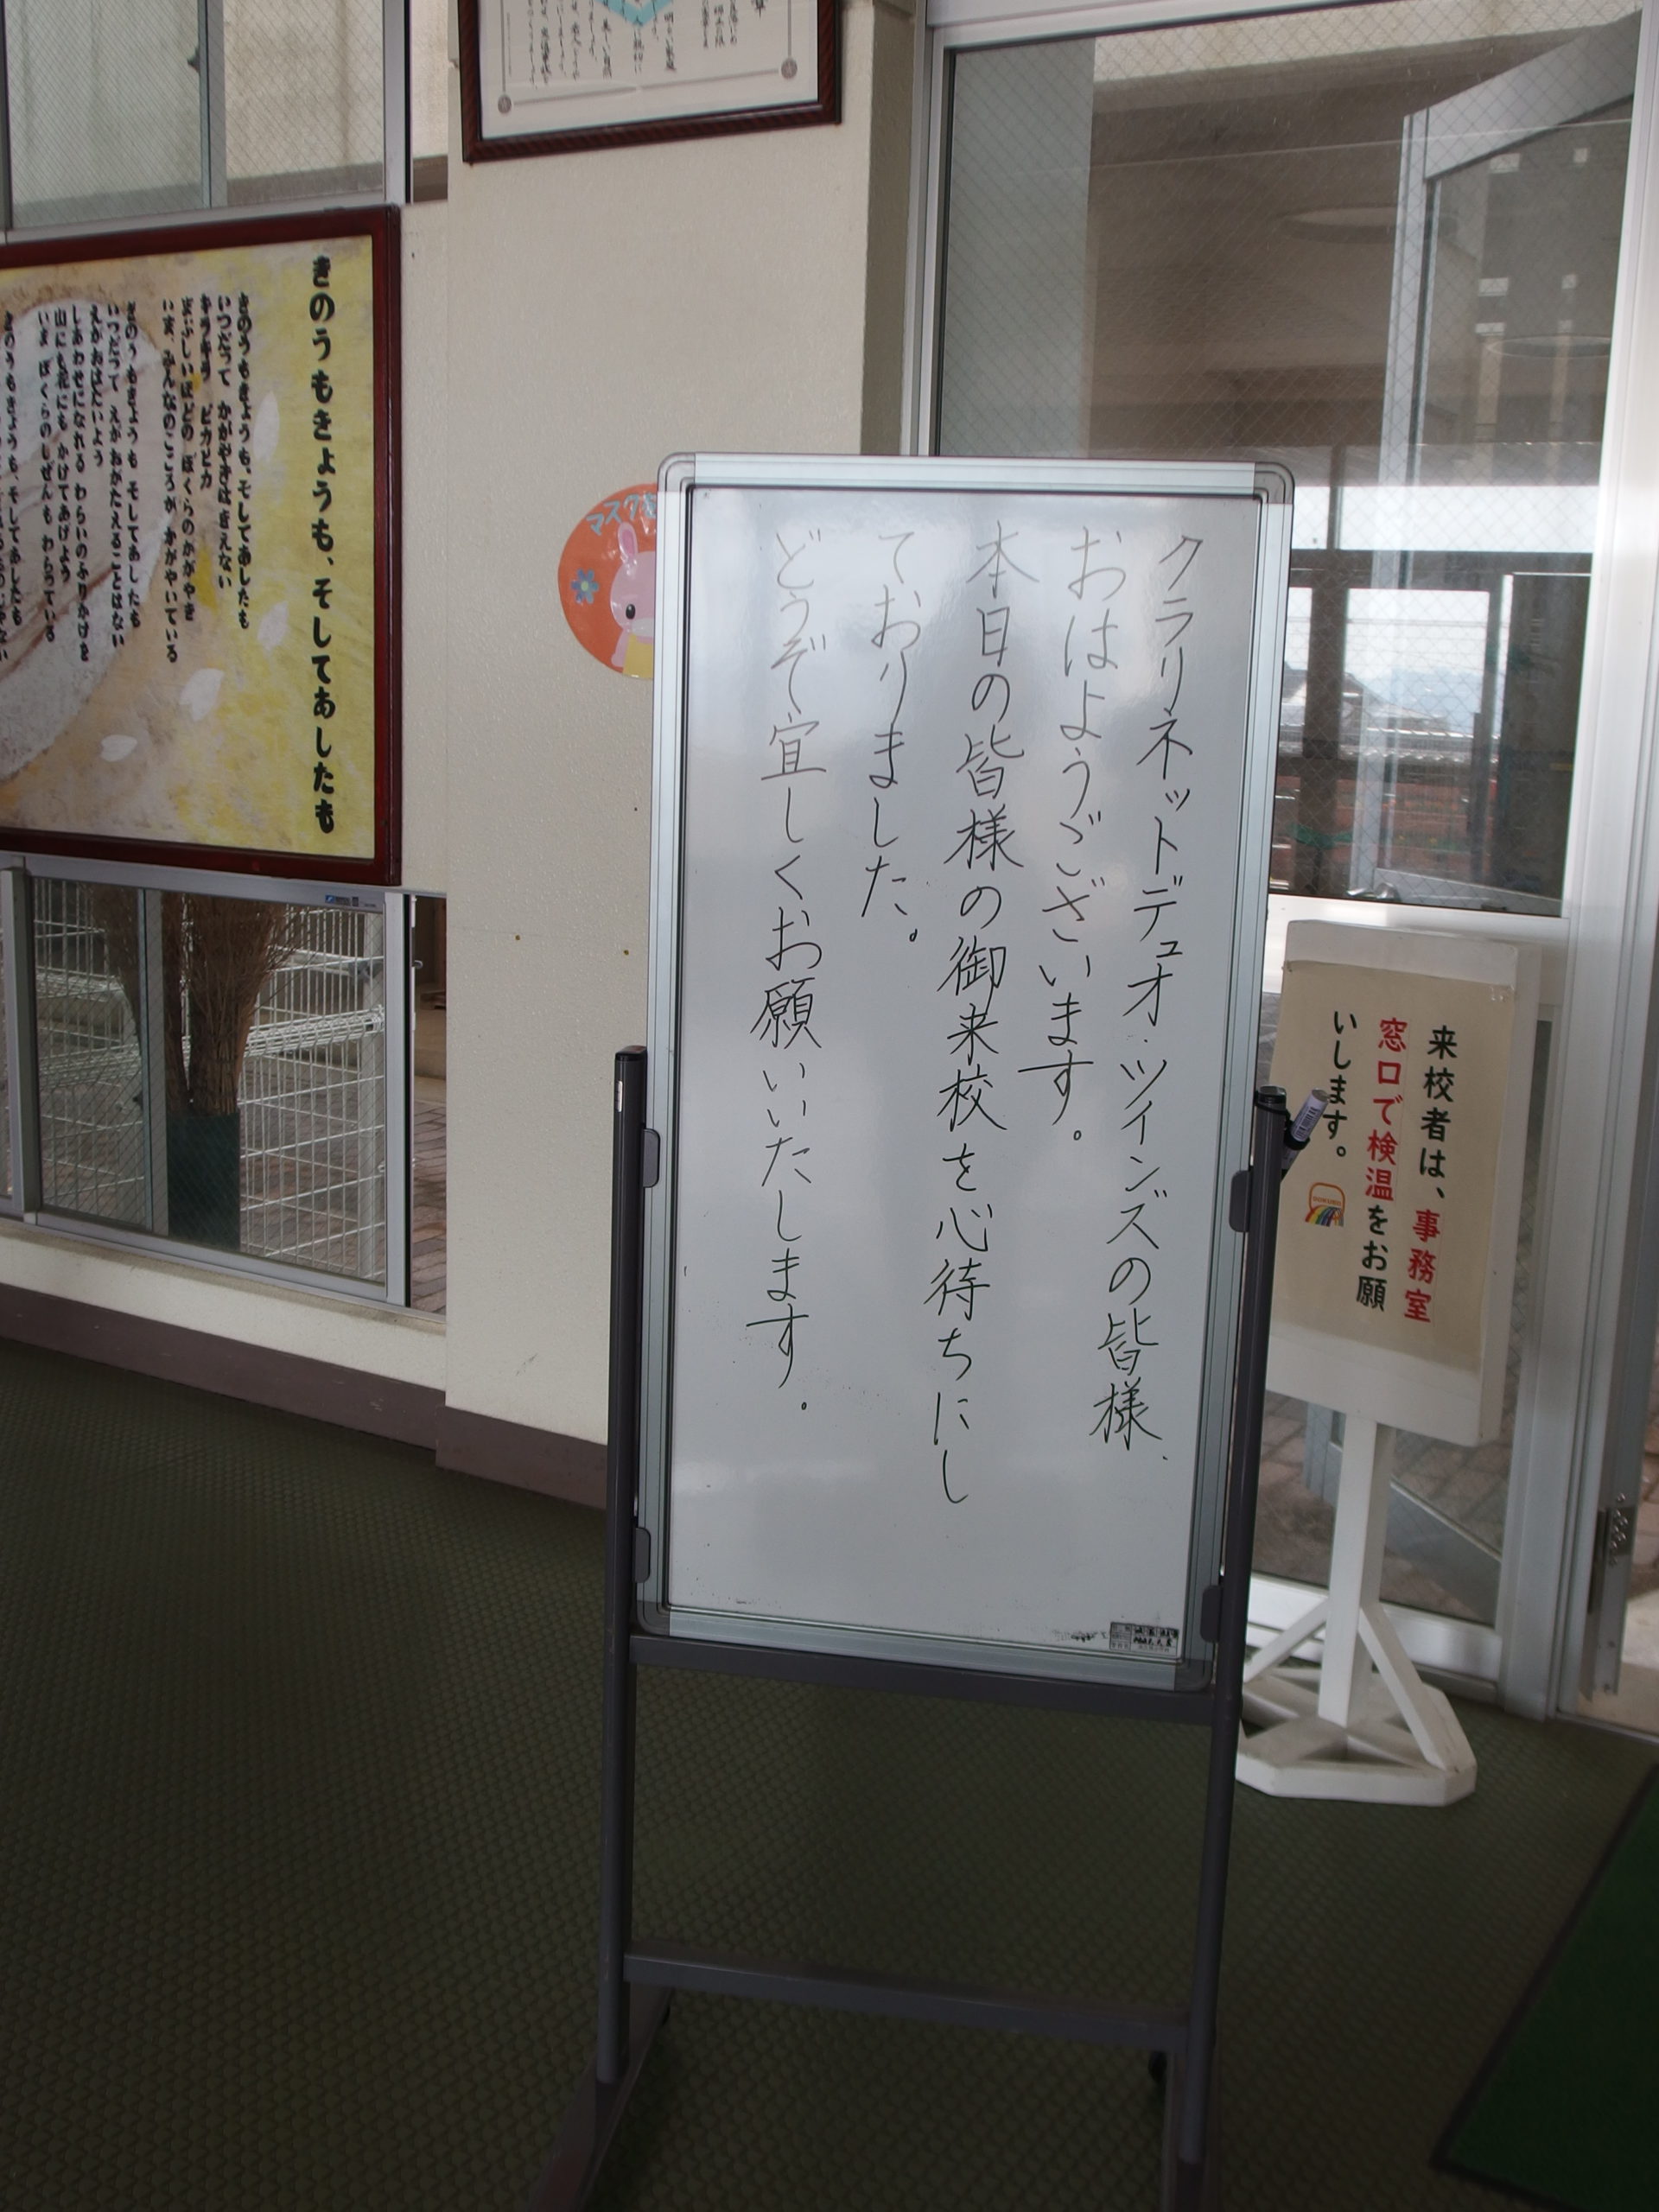 クラリネットデュオ・ツインズの皆様、
おはようございます。
本日の皆様の御来校を心待ちにし
ておりました。
どうぞ宜しくお願いいたします。
来校者は、事務室
窓口で検温をお願
いします。
マスクを
きのうもきょうも、そしてあしたも
きのうもきょうも、そしてあしたも
いつだって かがやきはきえない
キラキラ ピカピカ
まぶしいほどの ぼくらのかがやき
いま、みんなのこころが かがやいている
きのうもきょうも そしてあしたも
いつだって えがおがたえることはない
えがおはたいよう
しあわせになれる わらいのふりかけを
山にも花にも かけてあげよう
いま ぼくらのしぜんも わらっている
きのうもきょうも、そしてあしたも